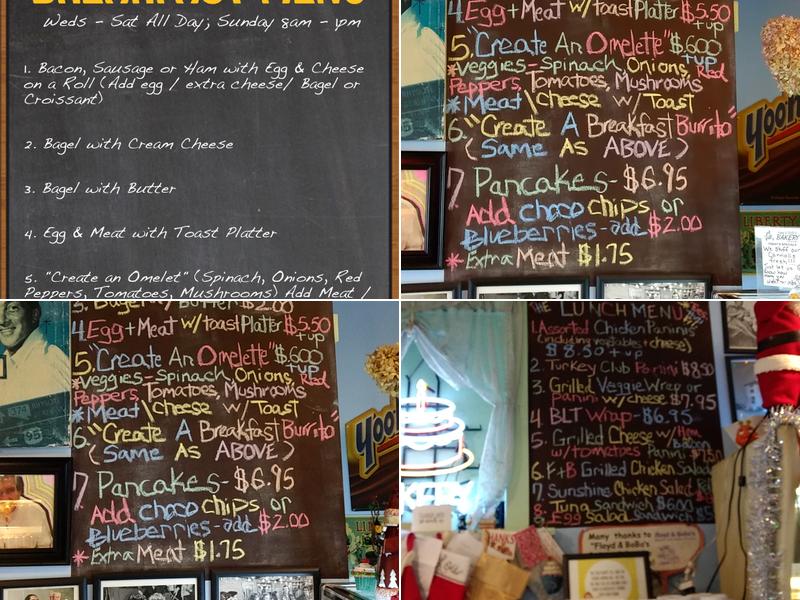 BREAKFAST MENU
Weds - Sat All Day; Sunday 8am - 1pm
1. Bacon, Sausage or Ham with Egg & Cheese
on a Roll (Add egg / extra cheese/ Bagel or
Croissant)
2. Bagel with Cream Cheese
3. Bagel with Butter
4. Egg & Meat with Toast Platter
5. "Create an Omelet" (Spinach, Onions, Red
Peppers, Tomatoes, Mushrooms) Add Meat /
4 Egg + Meat w/ toast Platter $5.50
+up
5. "Create An Omelette" $6.00
+up
*Veggies - Spinach, Onions, Red
Peppers, Tomatoes, Mushrooms
*Meat \ cheese w/ Toast
6. "Create A Breakfast Burrito"
(Same As ABOVE)
7 Pancakes - $6.95
Add choco chips or
Blueberries - add $2.00
*Extra Meat $1.75
Yoo
LIBERTY
BAKERY
3. Bagel w/ Butter $2.00
4. Egg + Meat w/ toast Platter $5.50
+up
5. "Create An Omelette" $6.00
+up
*Veggies - Spinach, Onions, Red
Peppers, Tomatoes, Mushrooms
*Meat \ cheese w/ Toast
6. "Create A Breakfast Burrito"
(Same As ABOVE)
7 Pancakes - $6.95
Add choco chips or
Blueberries - add $2.00
*Extra Meat $1.75
374
95
Yoo
LI
THE LUNCH MENU
1. Assorted Chicken Paninis
(including vegetables + cheese)
$8.50 + up
2. Turkey Club Panini $8.50
3. Grilled Veggie Wrap or
panini w/ cheese $7.95
4. BLT Wrap - $6.95
5. Grilled Cheese w/ Ham
Bacon
w/ tomatoes Panini $7.50
6. F+B Grilled Chicken Salad
7. Sunshine Chicken Salad
8. Tuna Sandwich $6.00
9. Egg Salad Sandwich
Many thanks to
"Floyd & BoBo's
THANKS